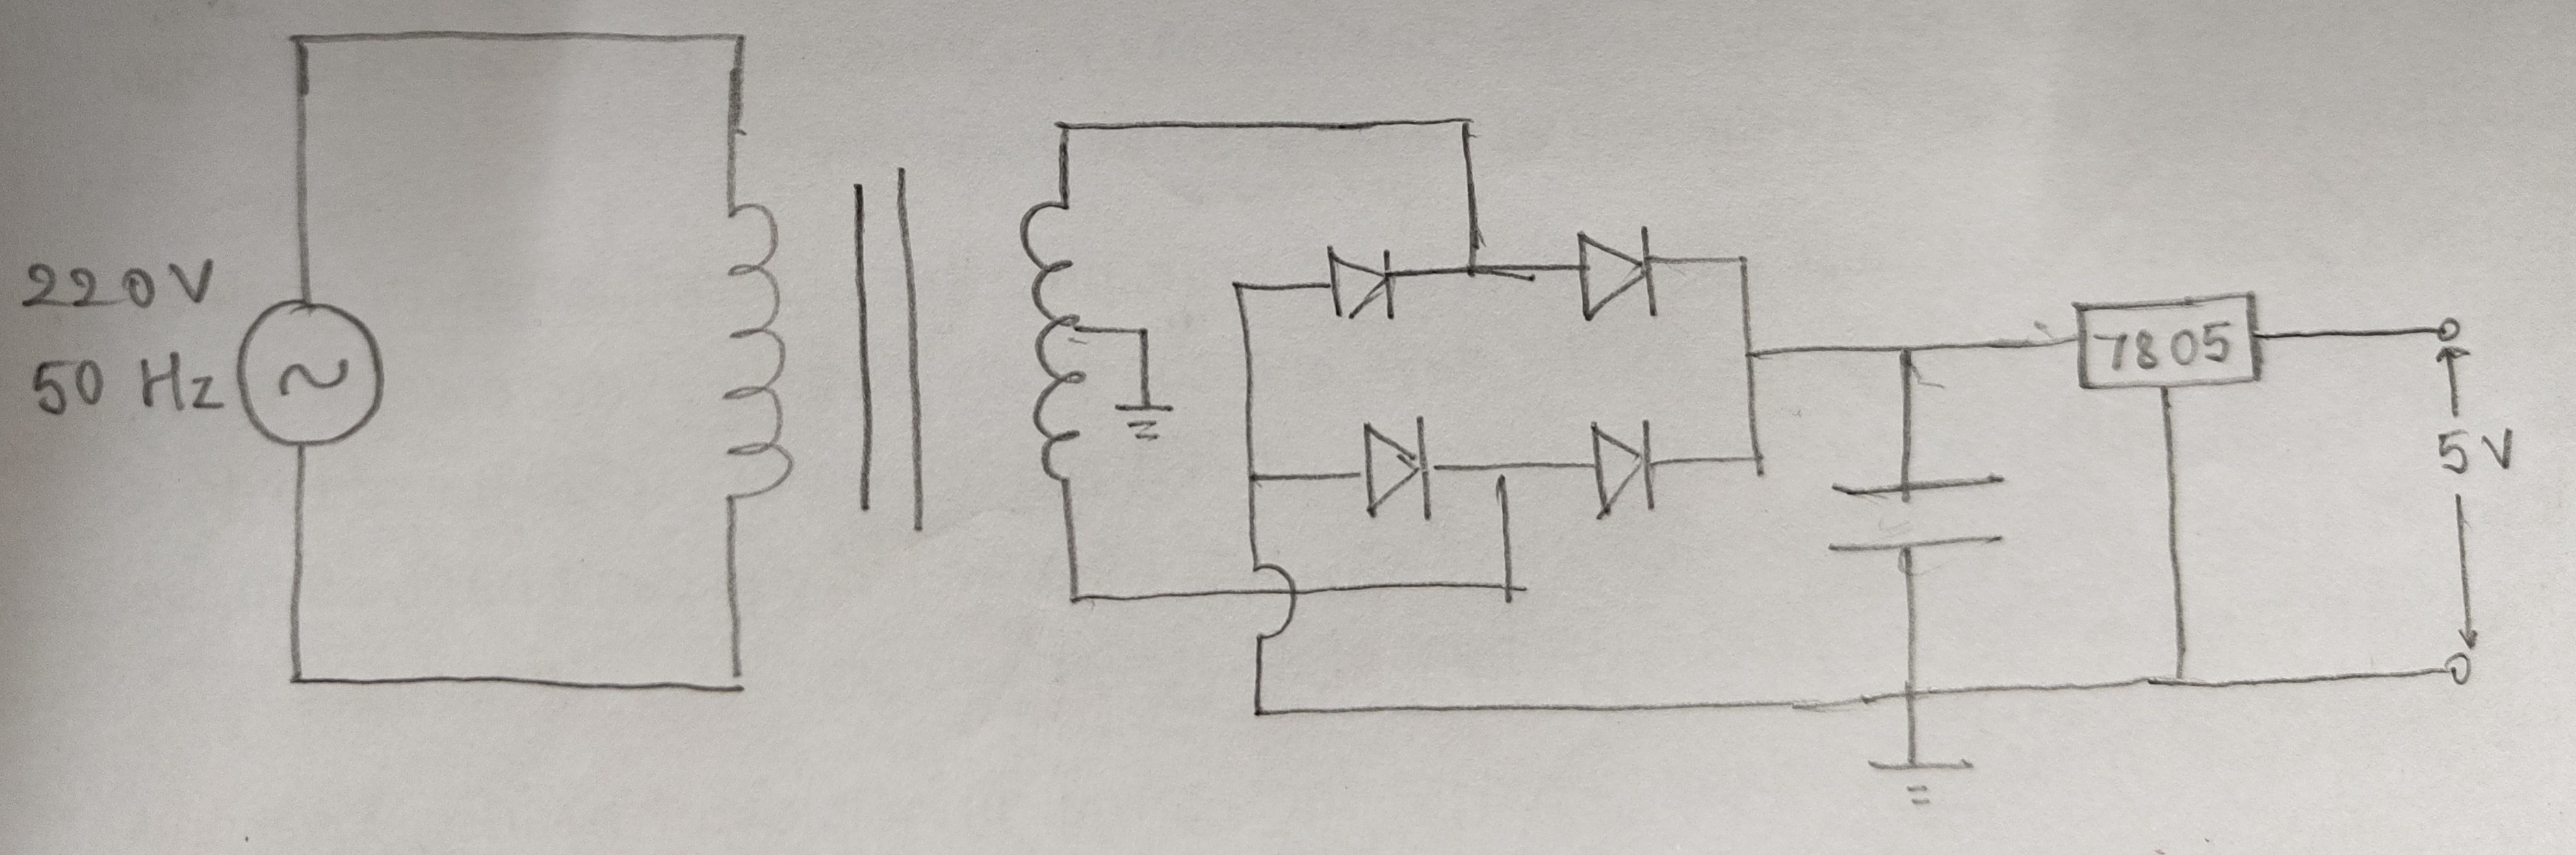 220V
50 Hz
7805
5V